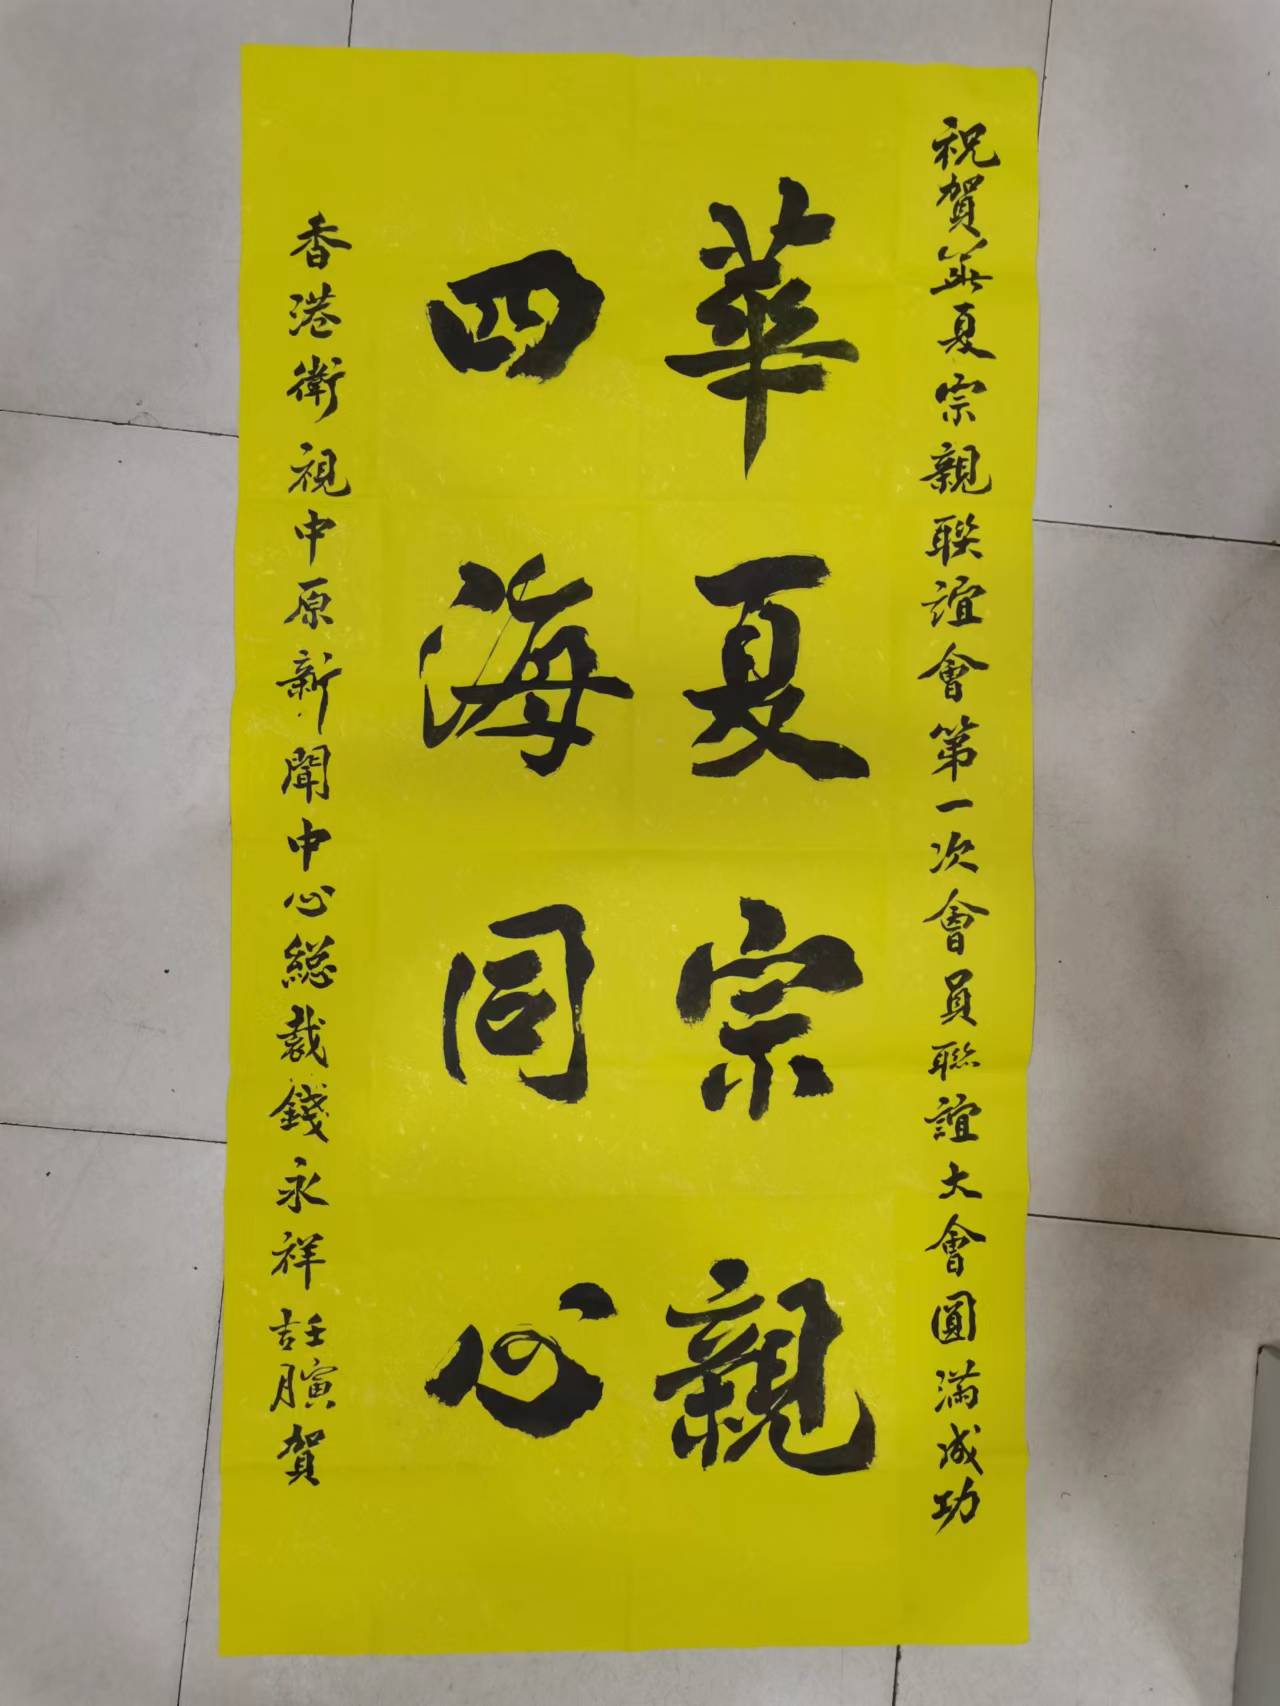 祝賀華夏宗親聯誼會第一次會員聯誼大會圓滿成功
華夏宗親
四海同心
香港衛視中原新聞中心総裁錢永祥壬寅吉月賀